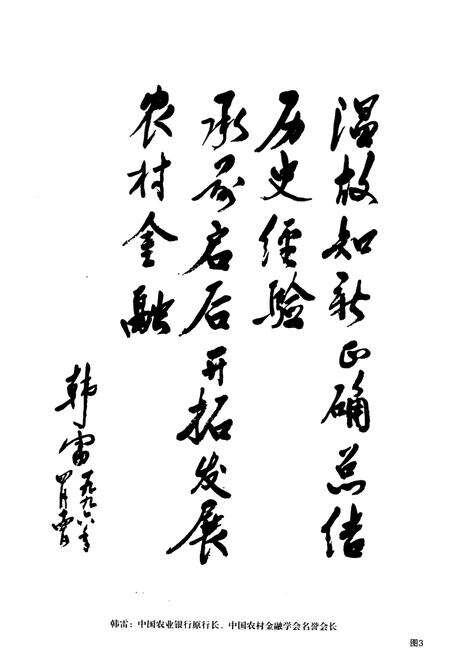 温故知新正确总结
历史经验
承前启后开拓发展
农村金融
韩雷一九九六年
四月曹
韩雷：中国农业银行原行长、中国农村金融学会名誉会长
图3